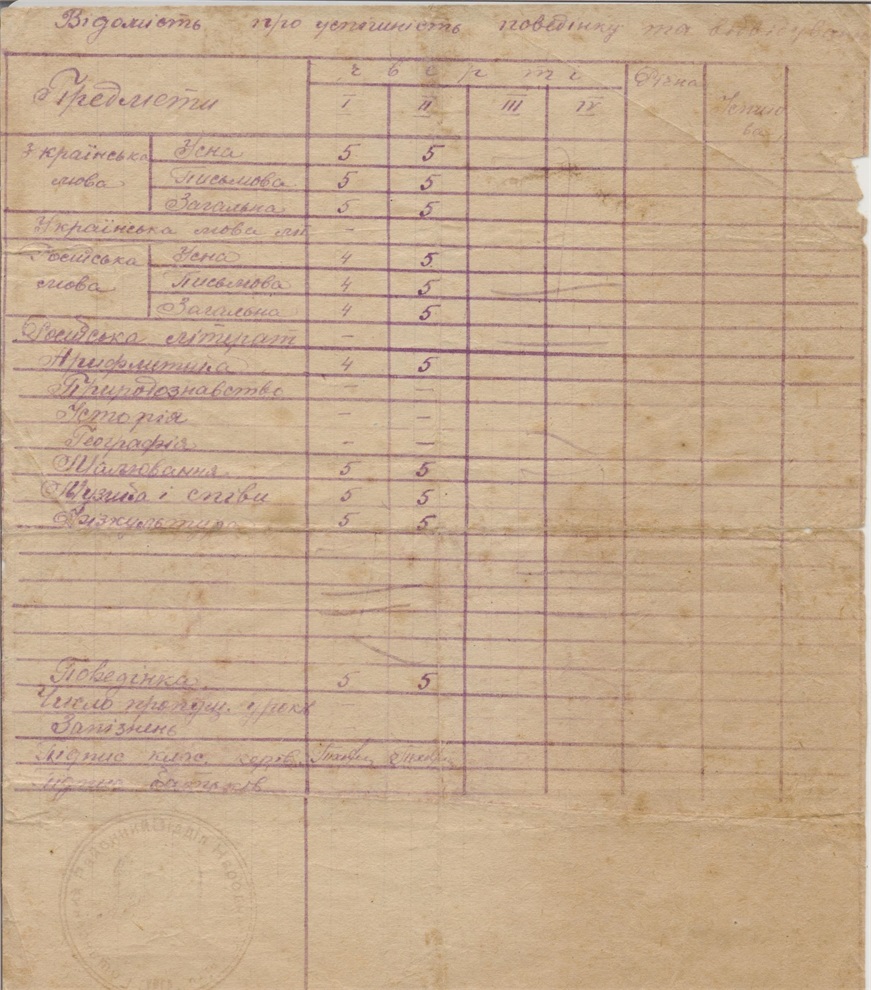 Відомість про успішність поведінку та
Предмети чверти Річна
I II III IV
Українська мова Усна 5 5
Письмова 5 5
Загальна 5 5
Українська мова –
Російська мова Усна 4 5
Письмова 4 5
Загальна 4 5
Російська літерат –
Арифметика 4 5
Природознавство – –
Історія – –
Географія – –
Малювання 5 5
Музика і співи 5 5
Фізкультура 5 5
Поведінка 5 5
Число пропущ. урокі
Запізнень
Підпис клас. керів.
Підпис батьків